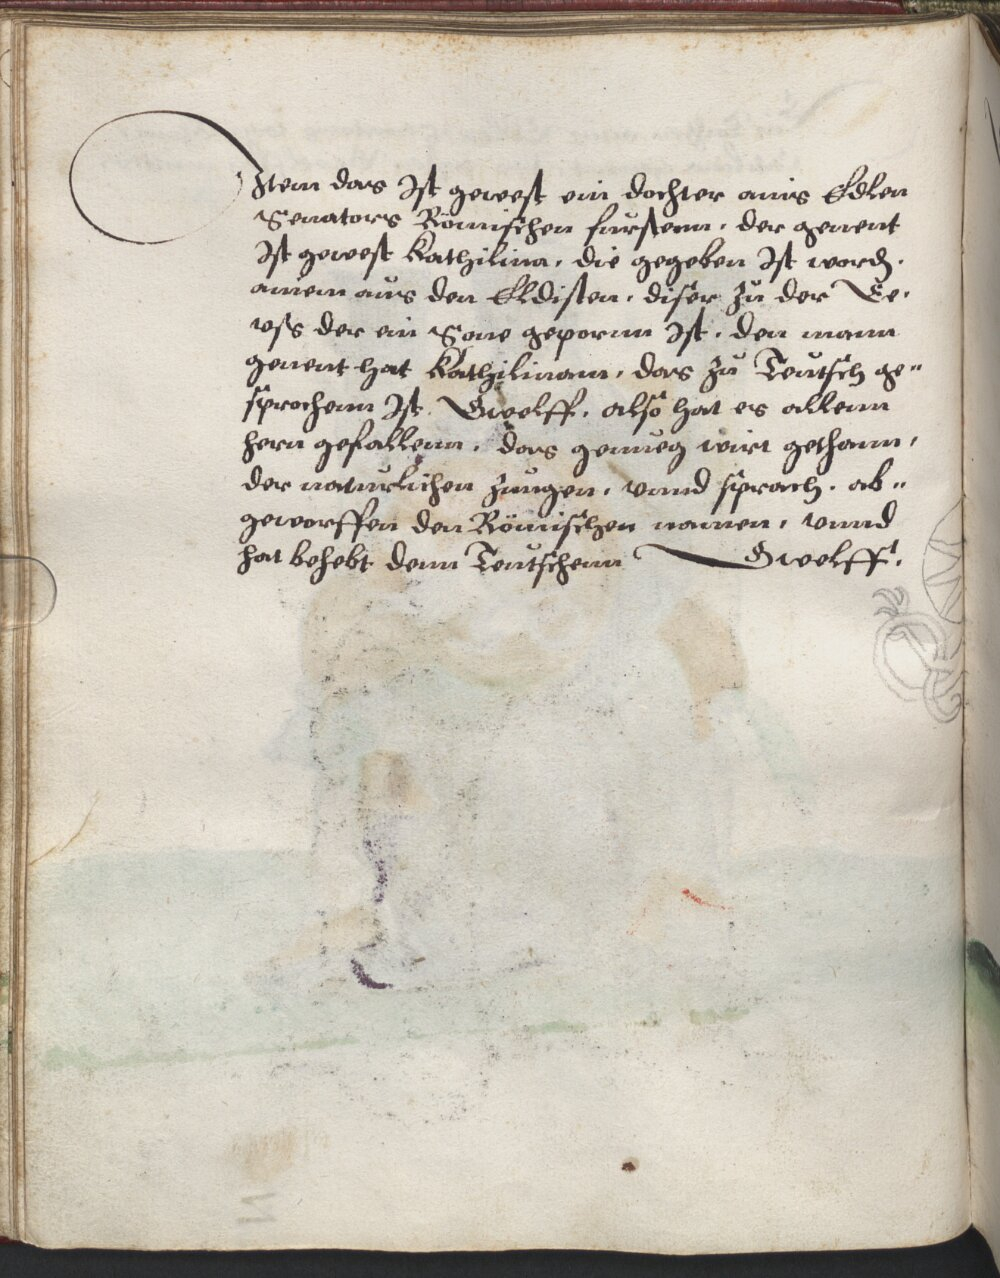 Item das Ist gewest ein dochter ains Edlen
Senators Römischen fürstenn, der genent
Ist gewest Kathilina, die gegeben Ist word.
ainem aus den Eldisten, diser zu der Ee,
vss der ein Sone gepornn Ist, den mann
genent hat Kathilinam, das zu Teutsch ge„
sprochenn Ist Gwelff, also hat es allenn
hern gefallenn, das genueg wirt gethann,
der naturlichen zungen, vnnd sprach, ab„
geworffen den Römischen namen, vnnd
hat behebt denn Teutschenn Gwelff.